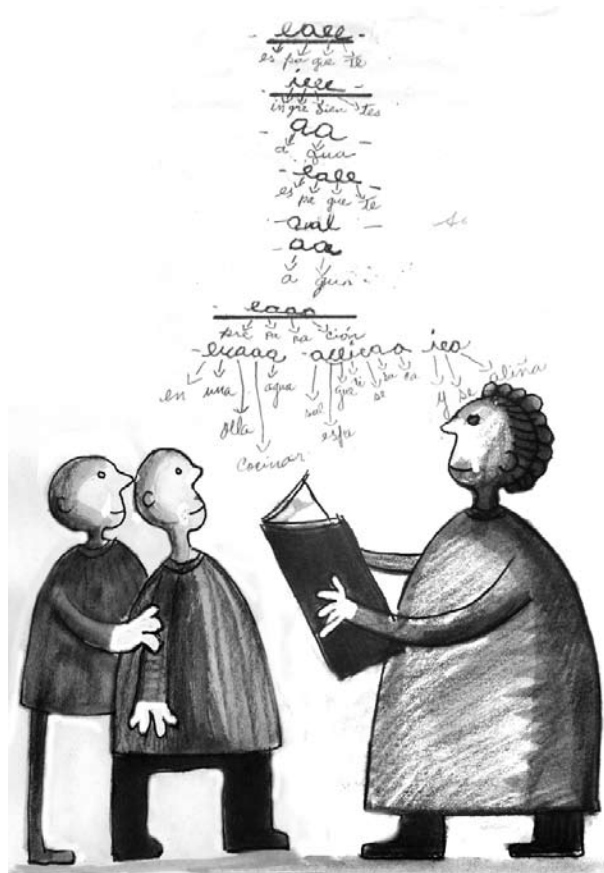 - eaee -
es pa gue te
ieee -
in gre dien tes
- aa -
a gua
- eaee -
es pa gue te
- aa
a gua
eaao
pre pa ra ción
en una agua sal gue se sa ca y se aliña
olla espa
Cocinar